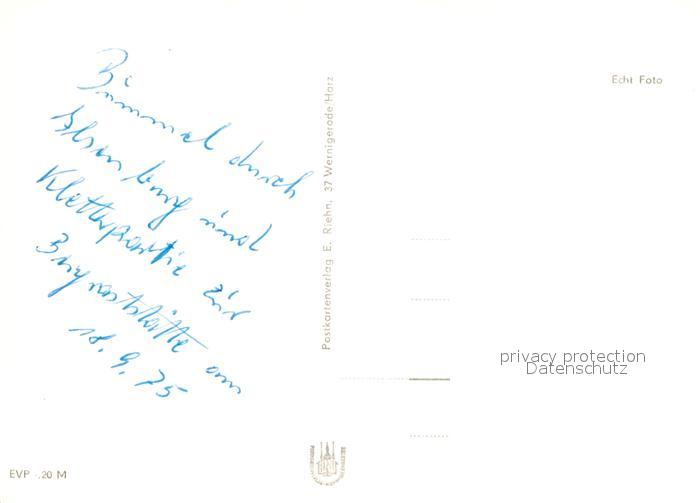 Bummel durch
Ilsenburg und
Kletterpartie zur
Berggaststätte am
18. 9. 75
Postkartenverlag E. Riehn, 37 Wernigerode/Harz
Echt Foto
privacy protection
Datenschutz
EVP -.20 M